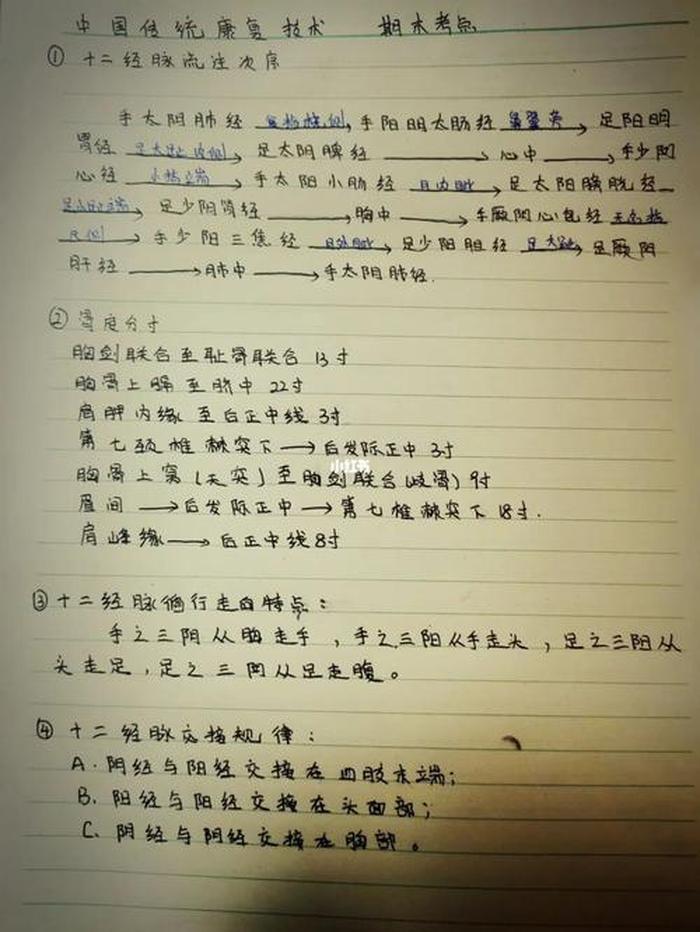 中国传统康复技术 期末考点
① 十二经脉流注次序
手太阴肺经 食指桡侧→ 手阳明大肠经 鼻翼旁→ 足阳明
胃经 足大趾内侧→ 足太阴脾经 → 心中 → 手少阴
心经 小指端→ 手太阳小肠经 目内眦→ 足太阳膀胱经
足小趾端→ 足少阴肾经 → 胸中 → 手厥阴心包经 无名指
尺侧→ 手少阳三焦经 目外眦→ 足少阳胆经 足大趾→ 足厥阴
肝经 → 肺中 → 手太阴肺经.
② 骨度分寸
胸剑联合至耻骨联合 13寸
胸骨上 至脐中 22寸
肩胛内缘 至后正中线 3寸
第七颈椎棘突下→后发际正中 3寸
小红书
胸骨上窝(天突)至胸剑联合(歧骨) 9寸
眉间→后发际正中→第七椎棘突下 18寸.
肩峰缘→后正中线8寸
③ 十二经脉循行走向特点:
手之三阴从胸走手,手之三阳从手走头,足之三阳从
头走足,足之三阴从足走腹。
④ 十二经脉交接规律:
A. 阴经与阳经交接在四肢末端;
B. 阳经与阳经交接在头面部;
C. 阴经与阴经交接在胸部。